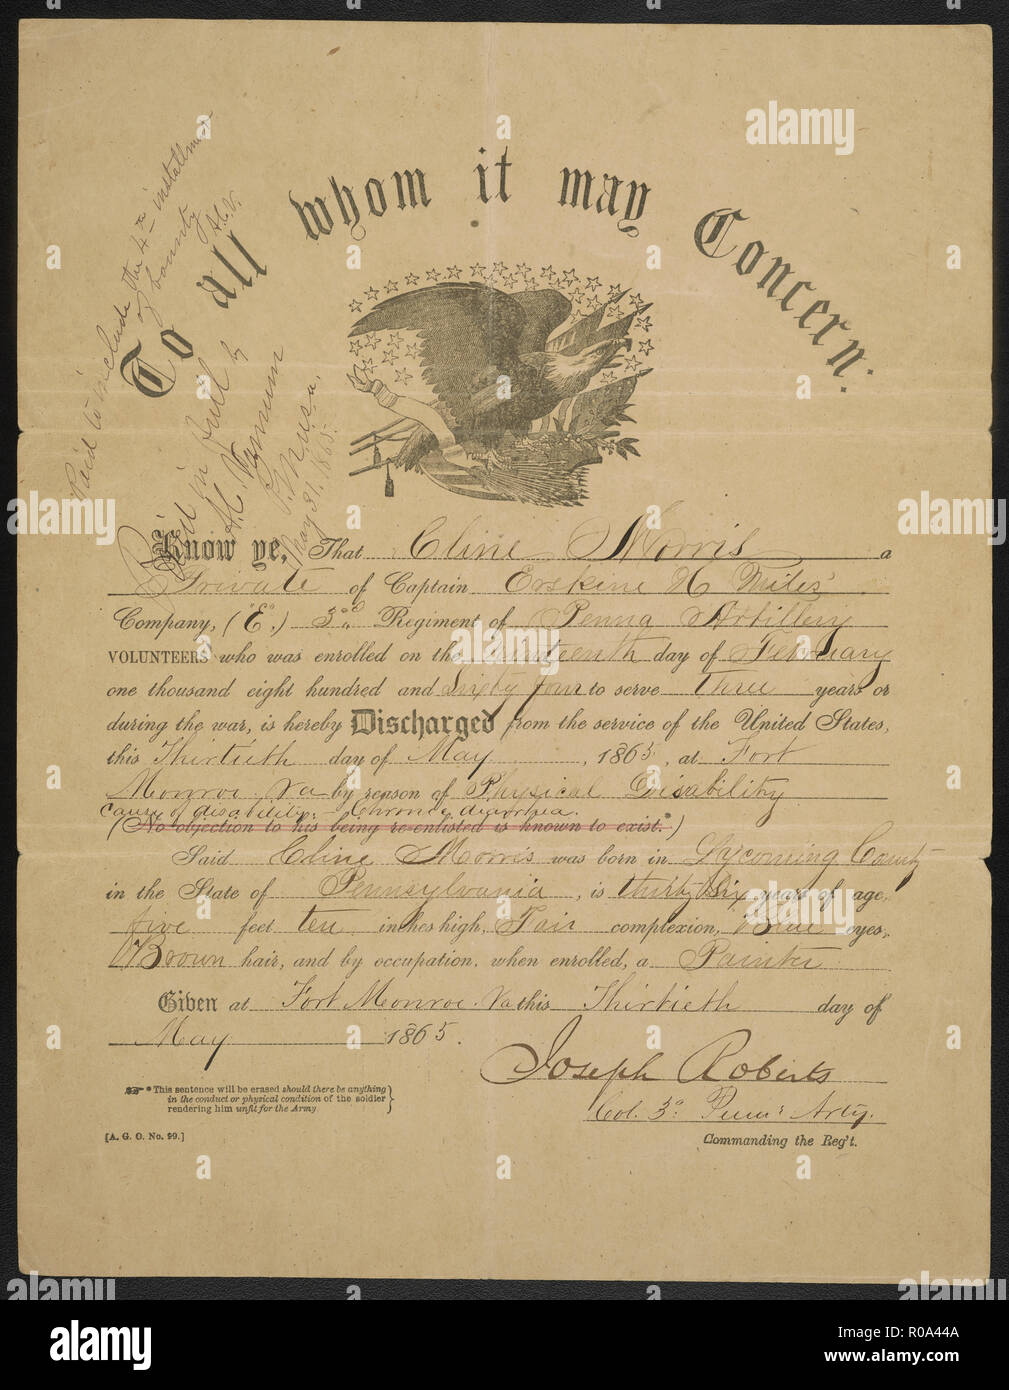 To all whom it may Concern:
Paid to include the 4th installment
of bounty
Paid in full by
May 31. 1865.
Know ye, That Cline Morris a
Private of Captain Erskine H Miles'
Company, ("E".) 3rd Regiment of Penna Artillery
VOLUNTEERS who was enrolled on the day of February
one thousand eight hundred and Sixty four to serve three years or
during the war, is hereby Discharged from the service of the United States,
this Thirtieth day of May, 1865, at Fort
Monroe Va by reason of Physical Disability
cause of disability:- Chronic diarrhea.
(No objection to his being re-enlisted is known to exist.*)
Said Cline Morris was born in Lycoming County
in the State of Pennsylvania, is thirty six years of age,
five feet ten inches high, Fair complexion, Blue eyes,
Brown hair, and by occupation, when enrolled, a Painter
Given at Fort Monroe Va this Thirtieth day of
May 1865.
Joseph Roberts
Col. 3d Penna Arty.
Commanding the Reg't.
☞ *This sentence will be erased should there be anything
in the conduct or physical condition of the soldier
rendering him unfit for the Army.
[A. G. O. No. 99.]
alamy
Image ID: R0A44A
www.alamy.com